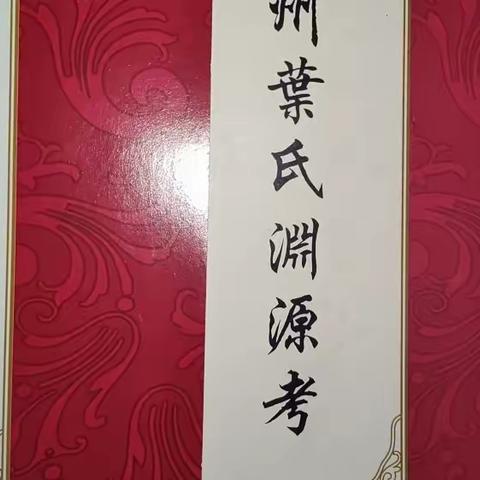 州葉氏淵源考